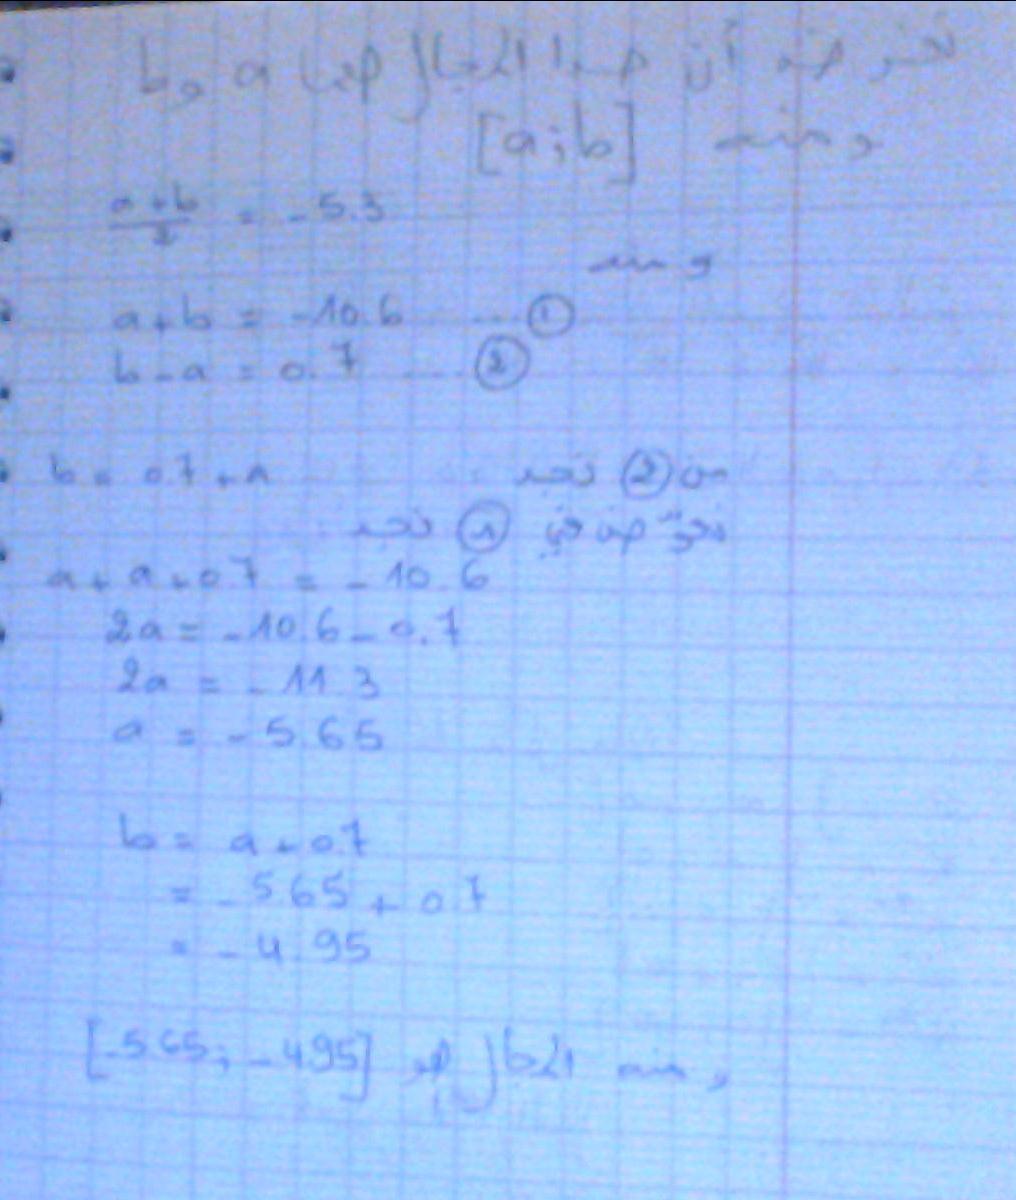 نفرض أن حدا المجال هما a و b
ومنه [a;b]
a+b/2 = -5.3
ومنه
a+b = -10.6 .... ①
b-a = 0.7 .... ②
من ② نجد b = 0.7+a
نعوض في ① نجد
a+a+0.7 = -10.6
2a = -10.6-0.7
2a = -11.3
a = -5.65
b = a+0.7
= -5.65+0.7
= -4.95
ومنه المجال هو [-5.65; -4.95]